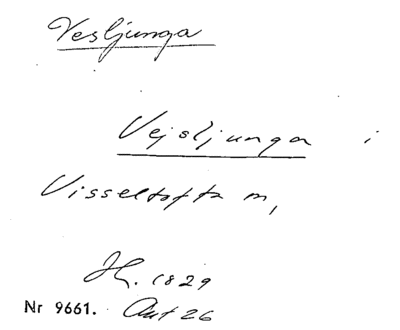 Vesljunga
Vejsljunga i
Visseltofta m,
Jh. 1829
Nr 9661. Aut 26